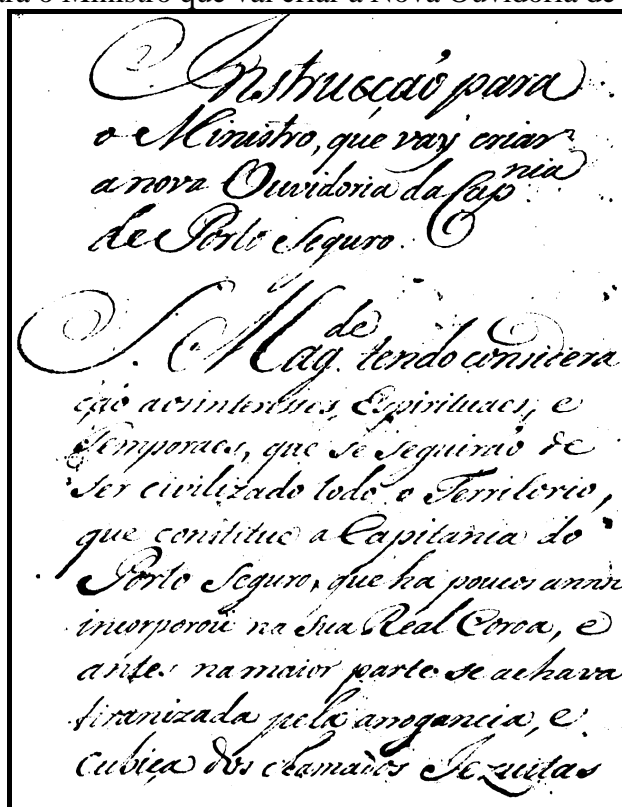 ra o Ministro que vai criar a Nova Ouvidoria de
Instrucção para
o Ministro, que vay criar
a nova Ouvidoria da Cap.nia
de Porto Seguro.
S. Mag.de tendo considera
ção aos interesses, Espirituaes, e
Temporaes, que se seguirão de
ser civilizado todo o Territorio,
que constitue a Capitania do
Porto Seguro, que ha poucos annos
incorporou na Sua Real Coroa, e
antes na maior parte se achava
tiranizada pela arrogancia, e
cubiça dos chamados Jezuitas